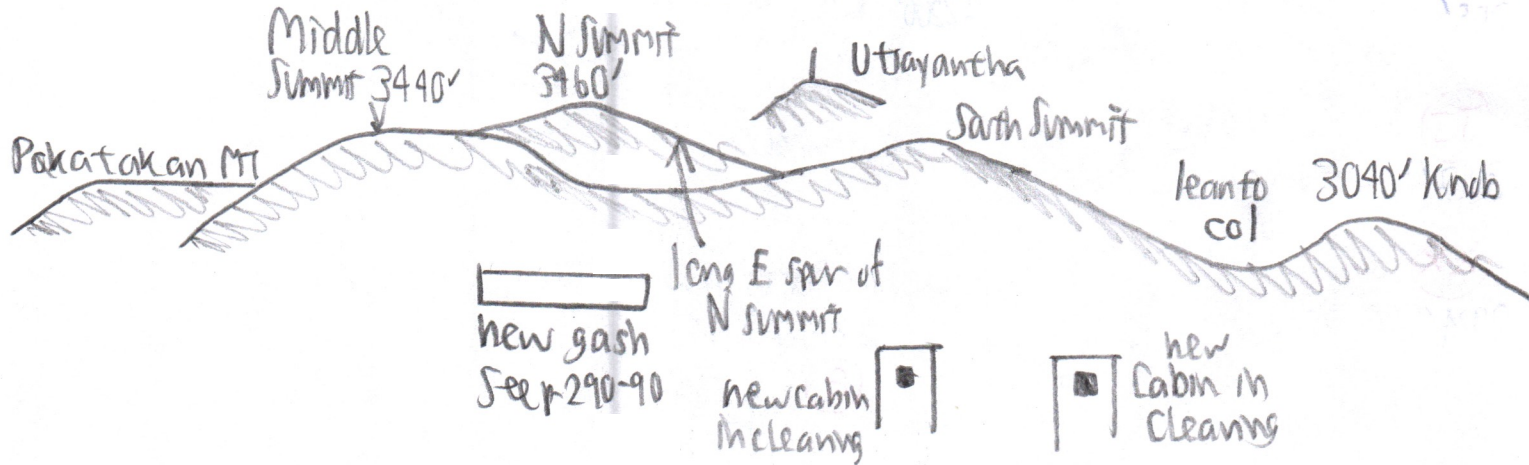 Middle
Summit 3440'
N Summit
3460'
Utsayantha
South Summit
Pakatakan MT
leanto
col
3040' Knob
long E spur of
N Summit
new gash
See p 290-90
new cabin
in clearing
new
Cabin in
Clearing